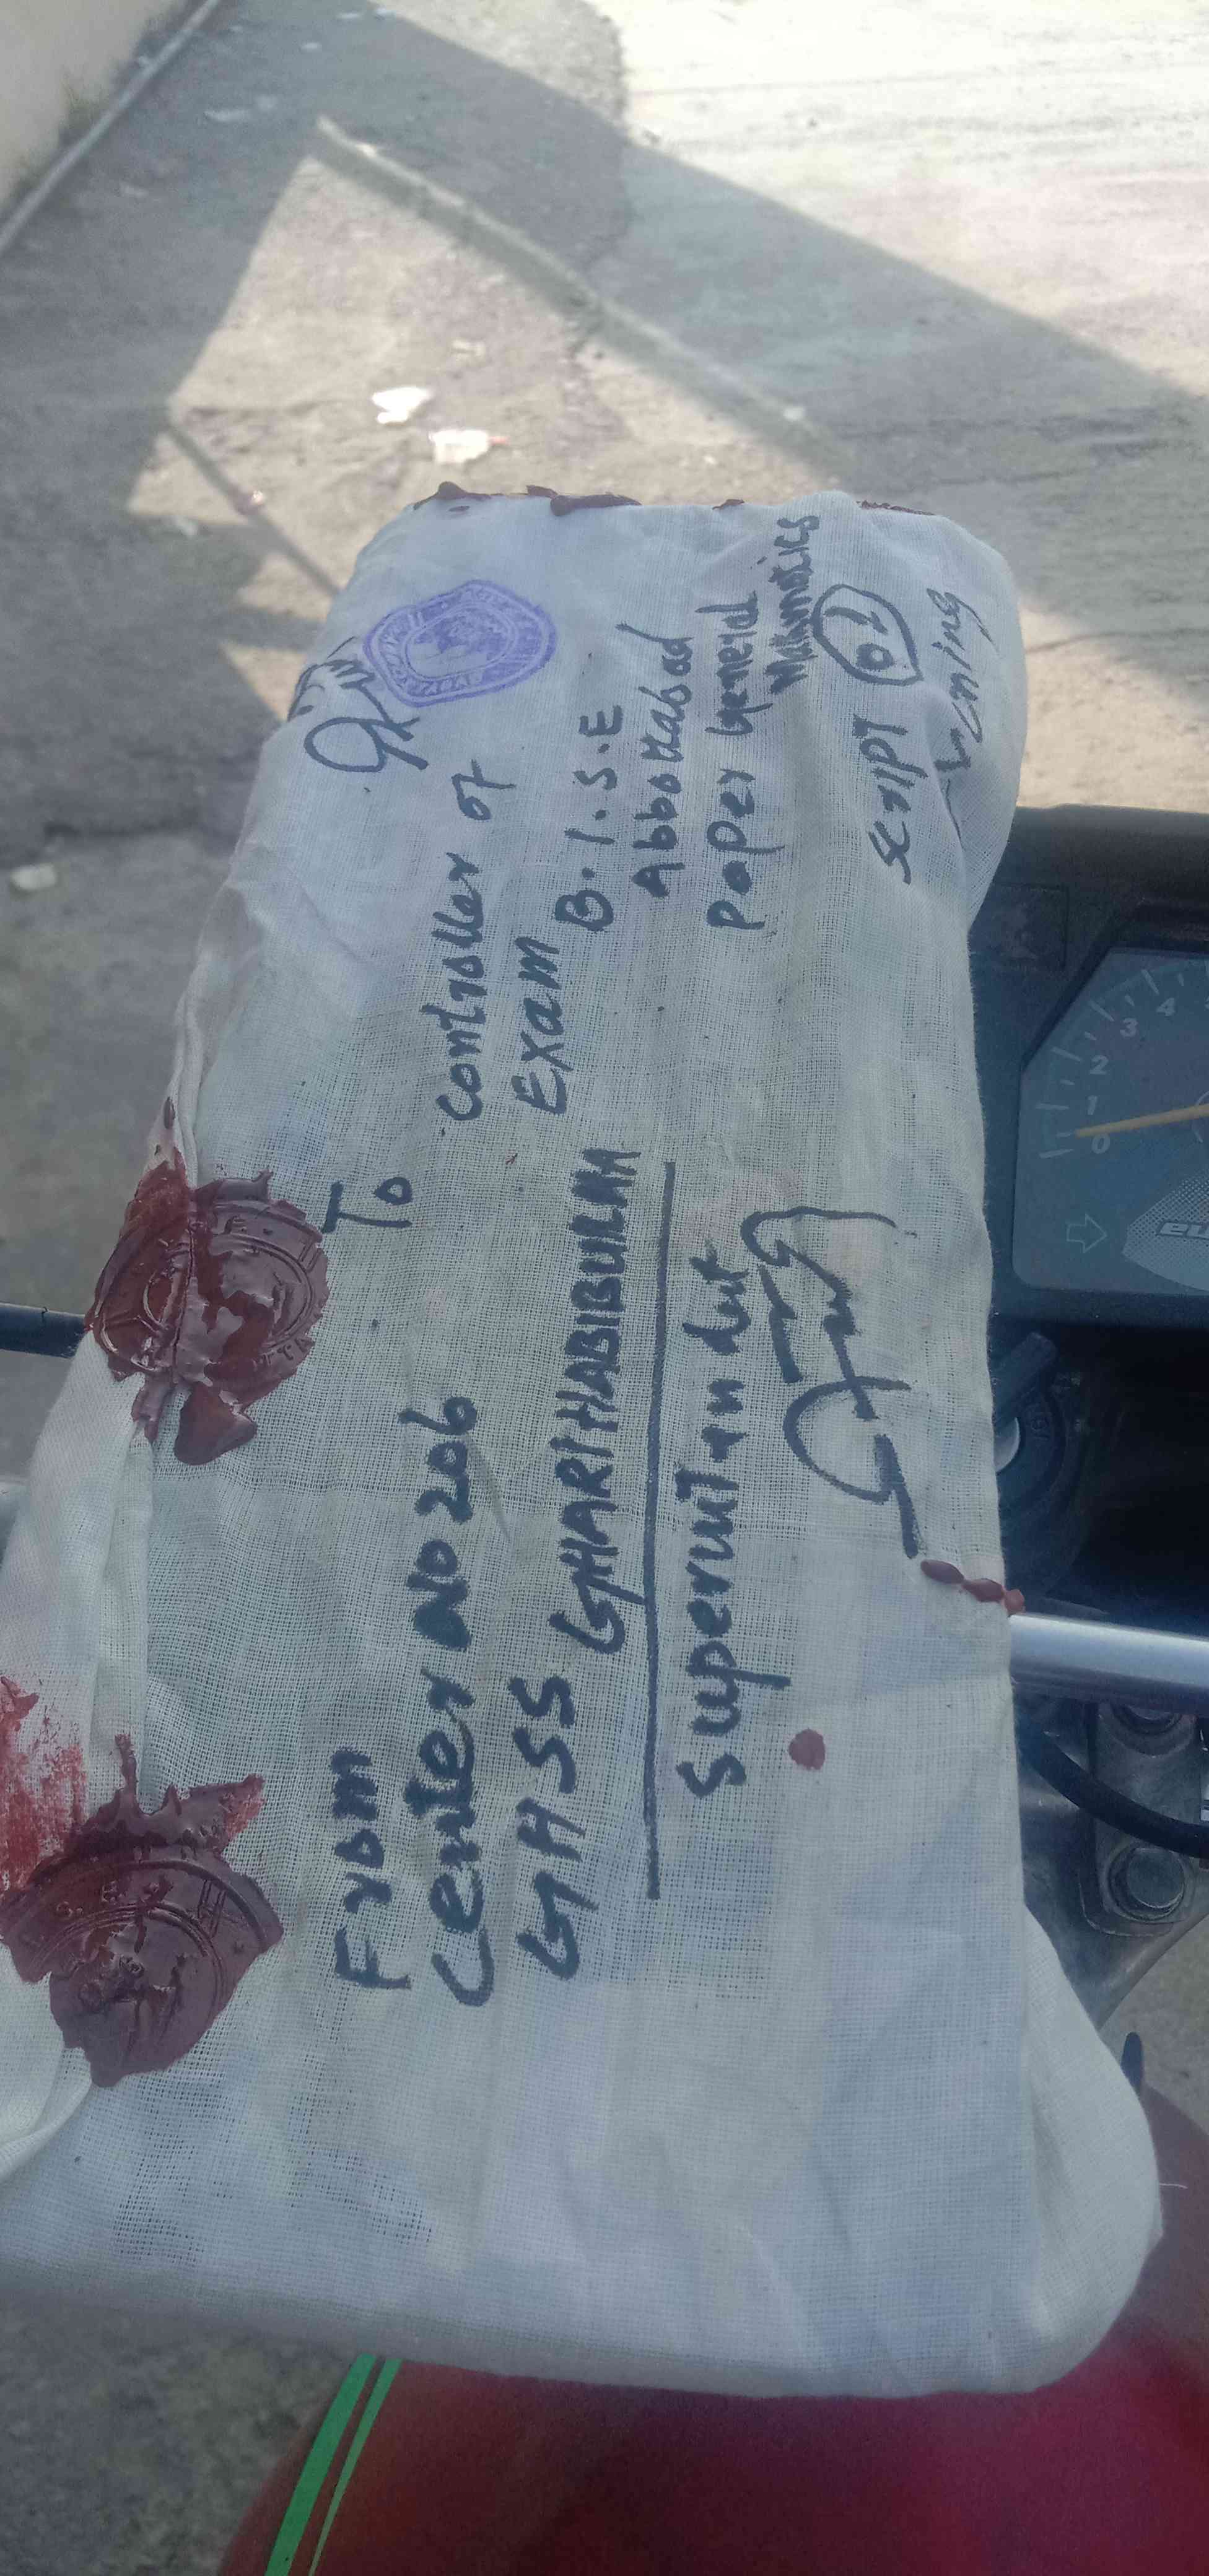 From
Center No 206
GHSS GHARI HABIBULAH
Superuitendet
To
controller of
Exam B.I.S.E
Abbottabad
paper General
Mathmatics
Script 01
0
1
2
3
4